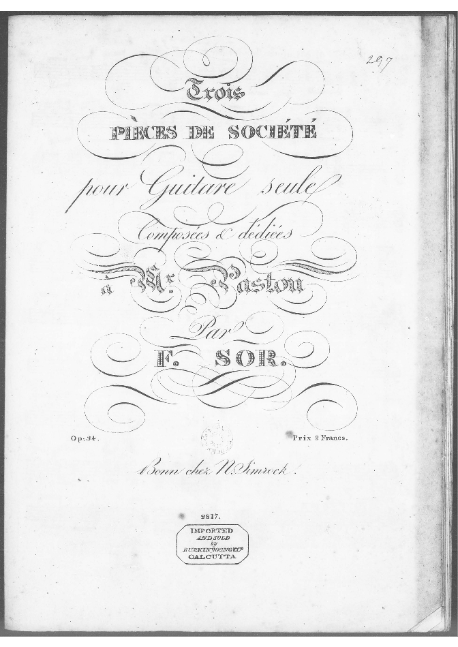 297
Trois
PIÈCES DE SOCIÉTÉ
pour Guitare seule
Composées & dédiées
à Mr. Pastou
Par
F. SOR.
Op: 34.
Prix 2 Francs.
Bonn chez N. Simrock.
2817.
IMPORTED
AND SOLD
by
CALCUTTA